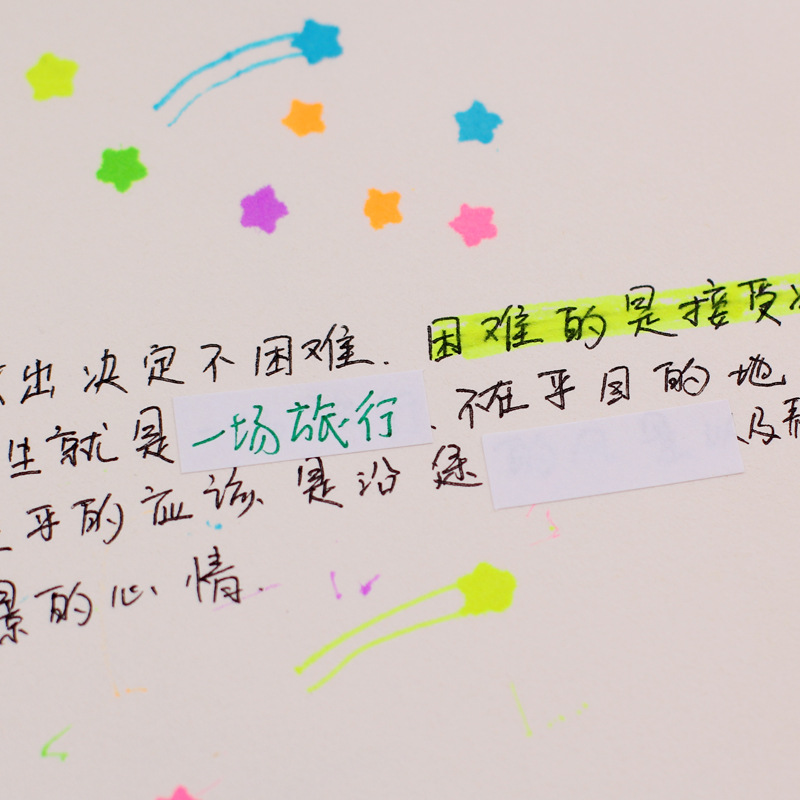 出决定不困难.困难的是接受
生就是一场旅行.不在乎目的地
乎的应该是沿途 以及
景的心情.